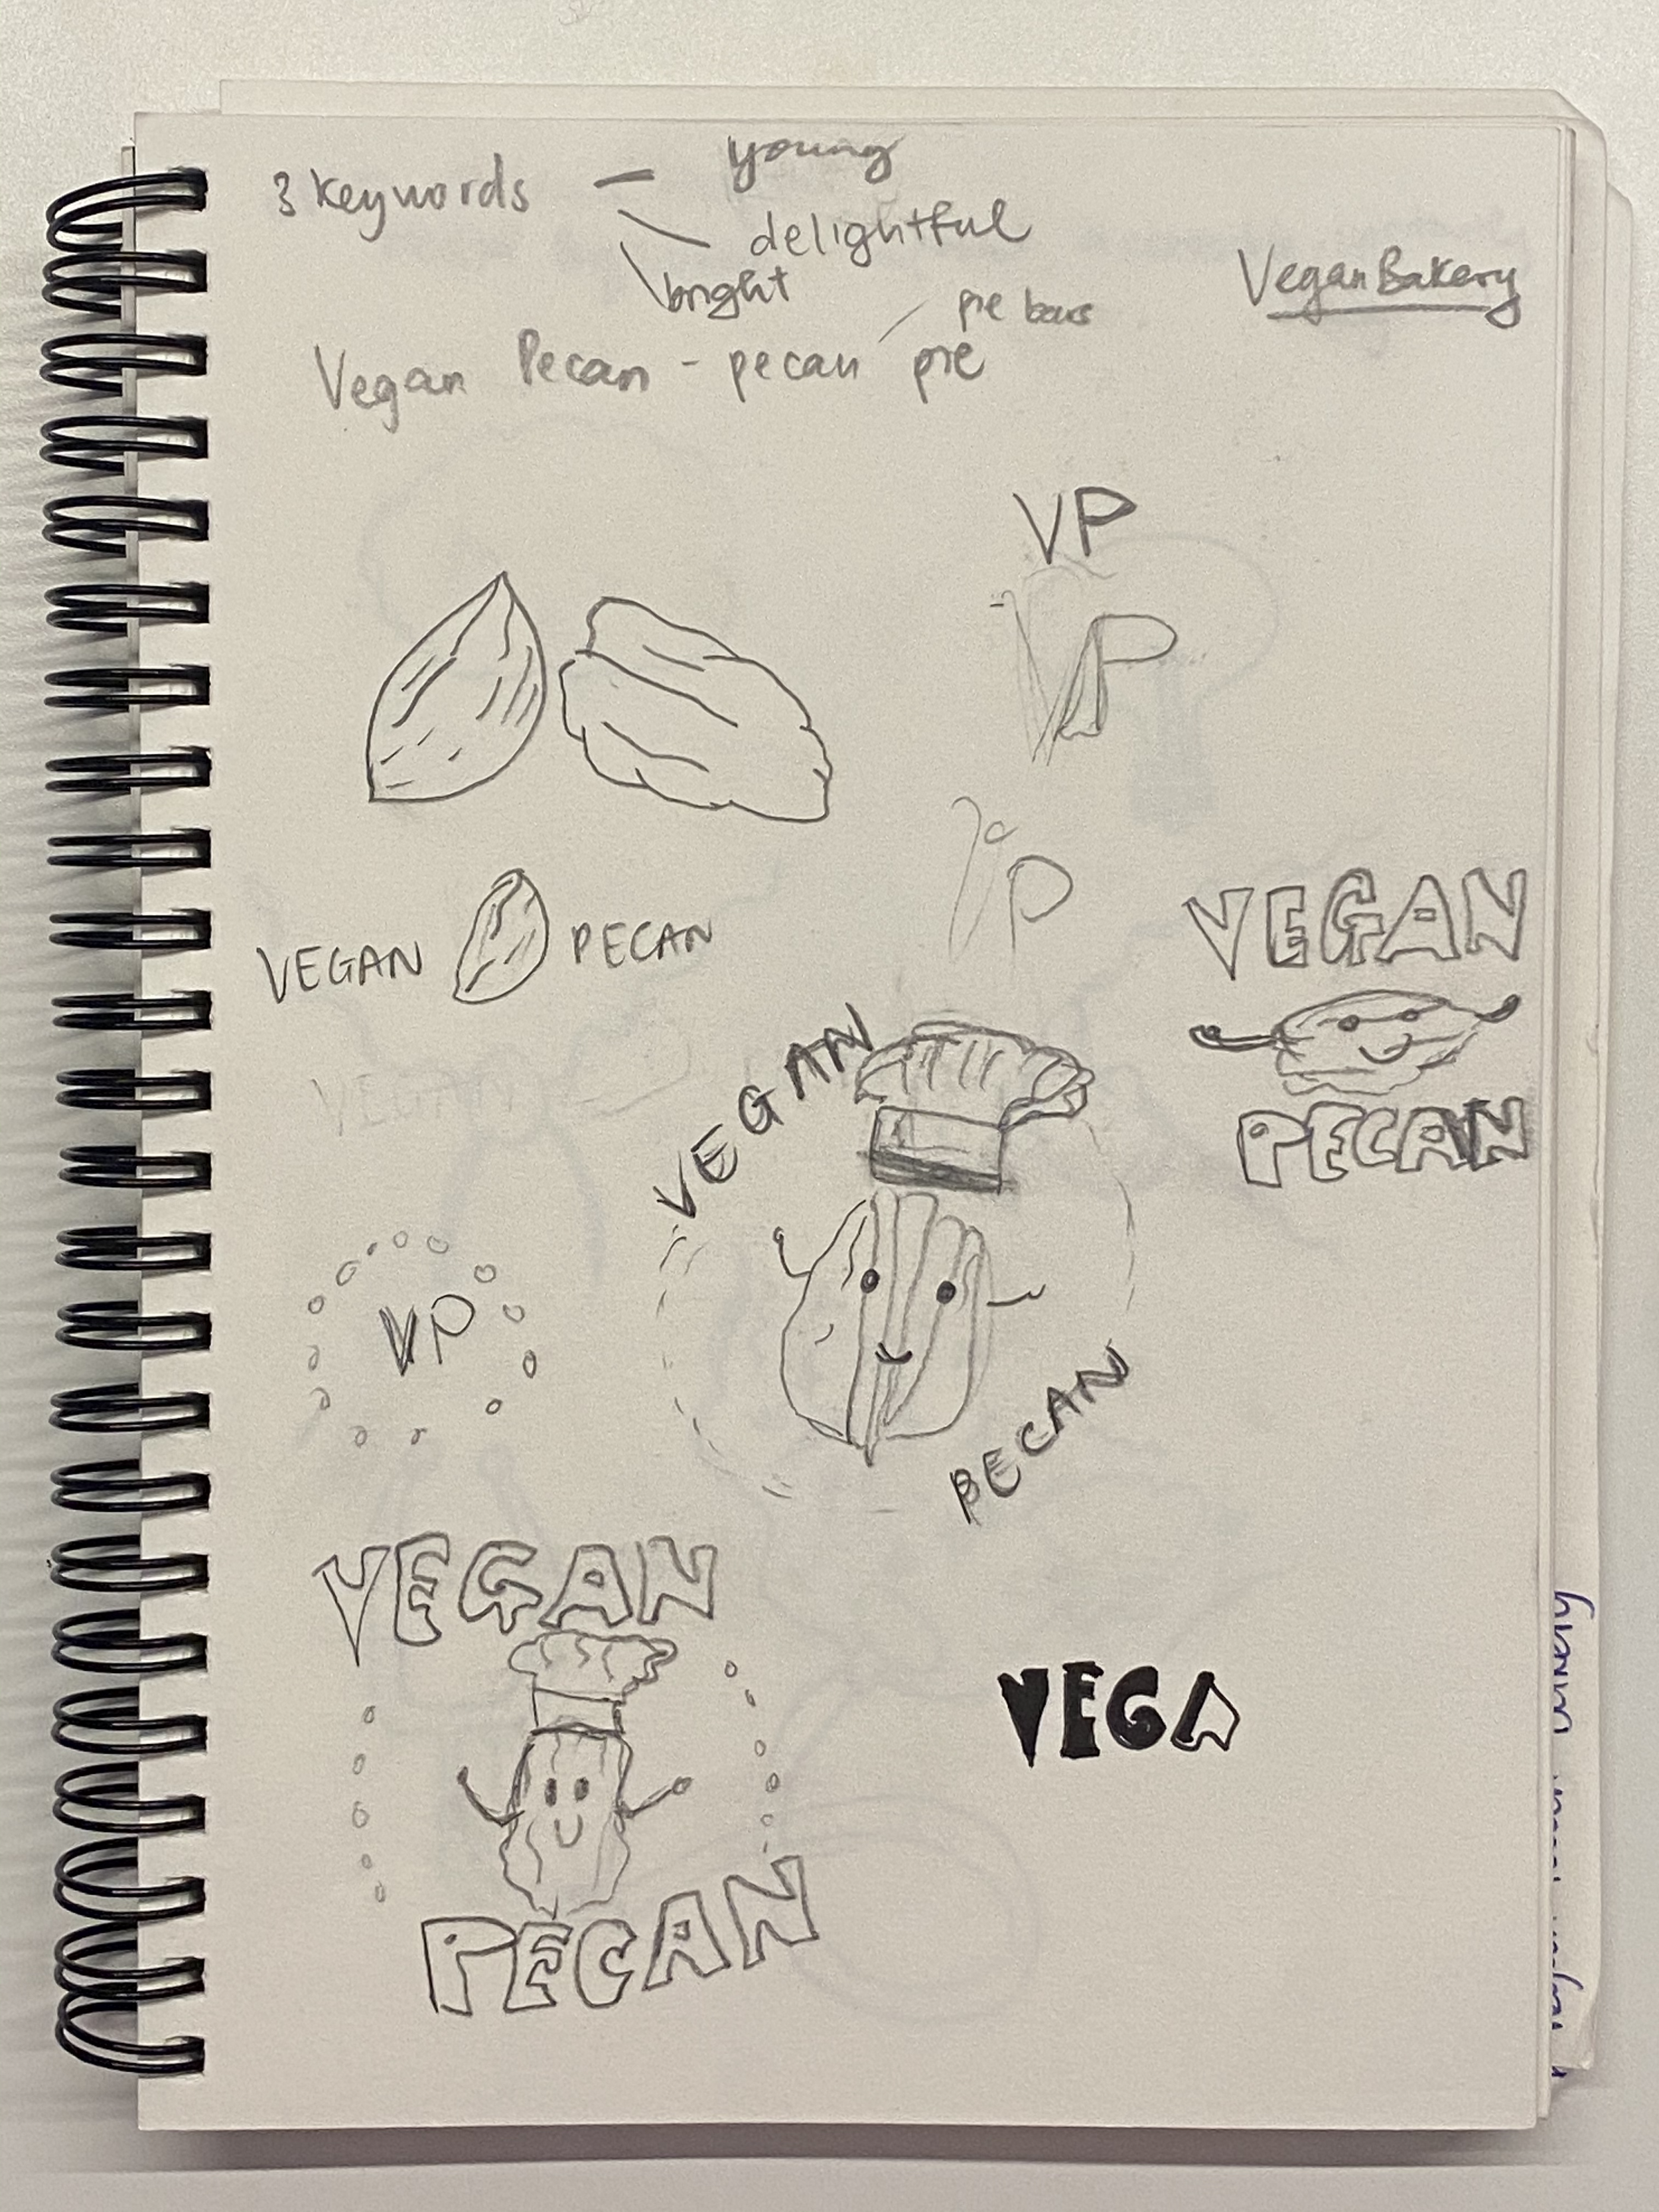 3 keywords — young
delightful
bright
Vegan Bakery
pie bars
Vegan Pecan - pecan pie
VP
VP
VP
VEGAN PECAN
VEGAN
PECAN
VEGAN
VEGAN
PECAN
VP
VEGAN
PECAN
VEGA